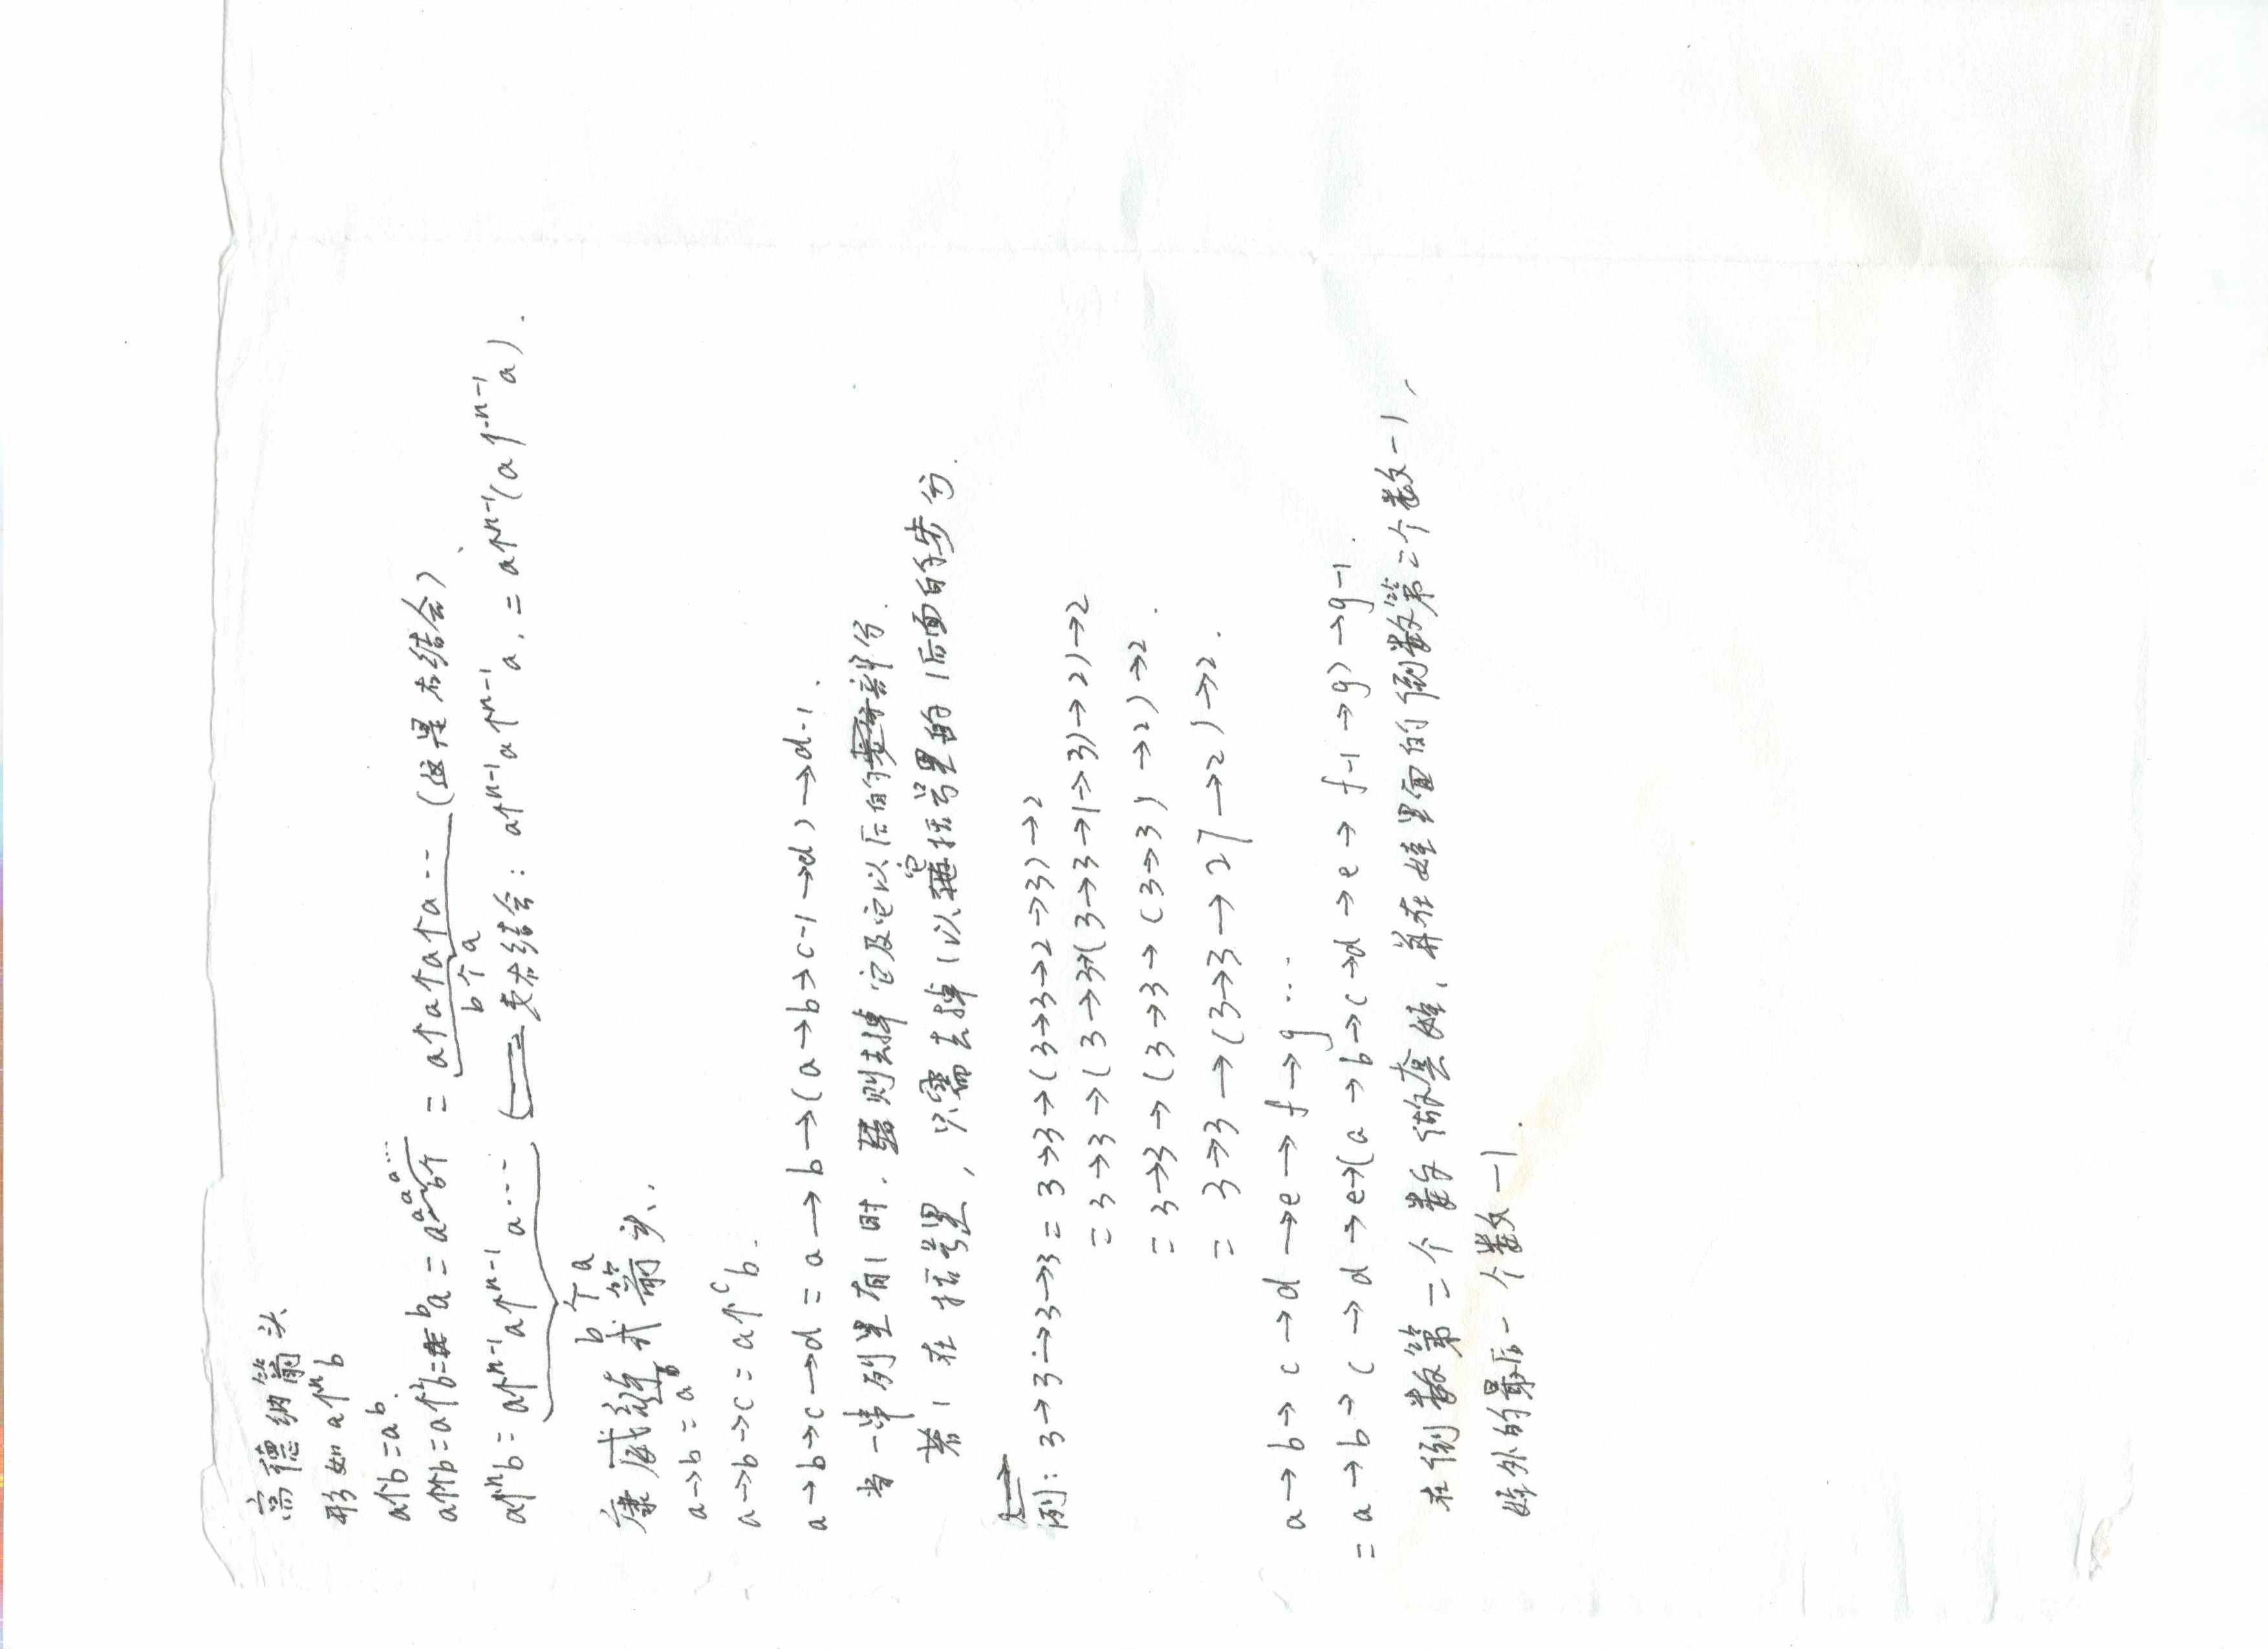 高德纳箭头
形如 a↑ⁿb
a↑b=aᵇ.
a↑↑b=a↑²b=ᵇa=a^a^a^a^… b个 = a↑a↑a↑a… b个a (这是右结合)、
a↑ⁿb=a↑ⁿ⁻¹a↑ⁿ⁻¹a… b个a 右结合: a↑ⁿ⁻¹a↑ⁿ⁻¹a.=a↑ⁿ⁻¹(a↑ⁿ⁻¹a).
康威链式箭头.
a→b=aᵇ
a→b→c=a↑ᶜb.
a→b→c→d=a→b→(a→b→c-1→d)→d-1.
当一串列里有1时.则去掉它及它以后的部分.
若1在括号里,只需去掉1以它括号里的1后面的步分.
例:3→3→3→3=3→3→(3→3→2→3)→2
=3→3→(3→3→(3→3→1→3)→2)→2
=3→3→(3→3→(3→3)→2)→2.
=3→3→(3→3→27→2)→2.
a→b→c→d→e→f→g…
=a→b→c→d→e→(a→b→c→d→e→f-1→g)→g-1.
在倒数第二个数字做套娃、并在娃里面的倒数第二个数-1,
娃外的最后一个数-1.